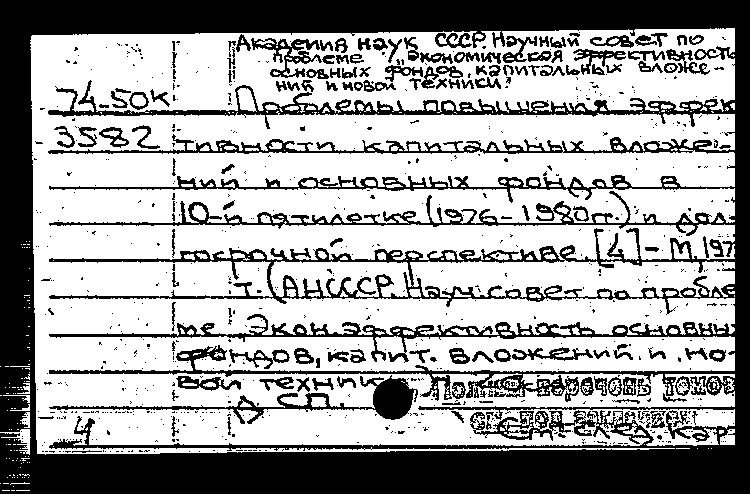 Академия наук СССР. Научный совет по
проблеме „экономическая эффективность
основных фондов, капитальных вложе-
ний и новой техники."
74-50к Проблемы повышения эффек
3582 тивности капитальных вложе-
ний и основных фондов в
10-й пятилетке (1976-1980гг.) и дол-
госрочной перспективе. [4] - М, 197
т. (АН СССР. Науч. совет по пробле
ме „Экон. эффективность основных
фондов, капит. вложений и но-
вой техники
Полный перечень томов
А СП.
см. под заглавием
4 См. след. кар